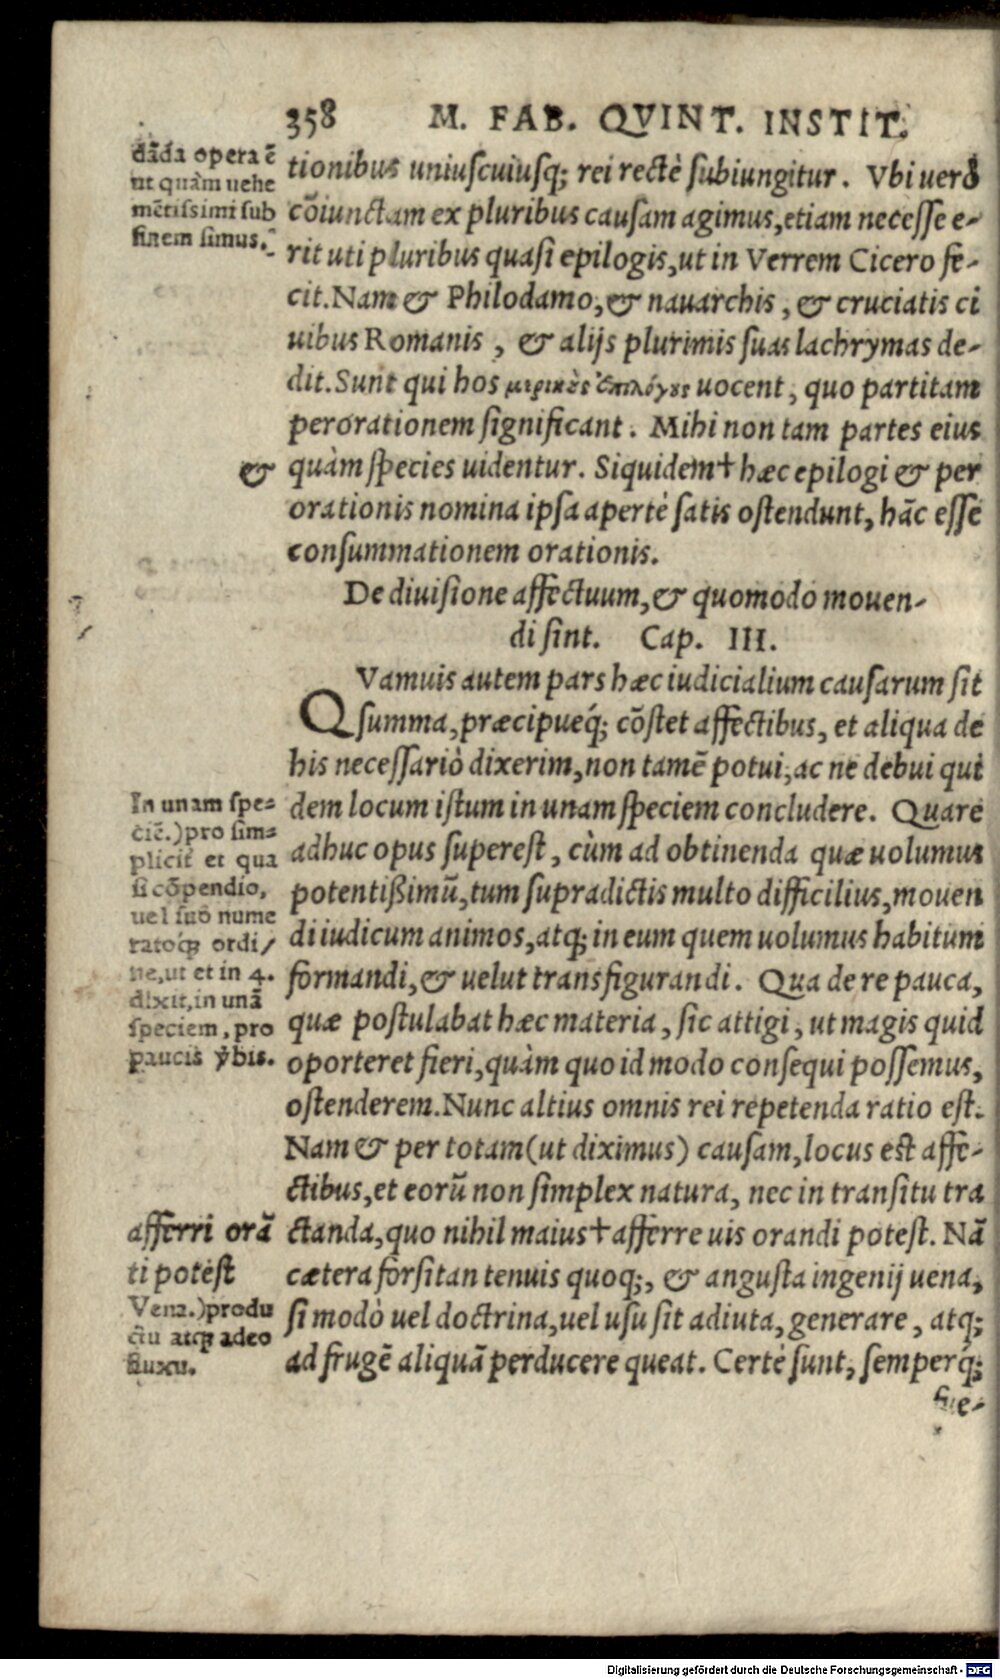 358 M. FAB. QVINT. INSTIT.
dãda opera ẽ
ut quàm uehe
mẽtissimi sub
finem simus.
tionibus uniuscuiusq; rei rectè subiungitur. Vbi uerò
cõiunctam ex pluribus causam agimus, etiam necesse e-
rit uti pluribus quasi epilogis, ut in Verrem Cicero fe-
cit. Nam & Philodamo, & nauarchis, & cruciatis ci
uibus Romanis, & alijs plurimis suas lachrymas de-
dit. Sunt qui hos μερικοὺς ἐπιλόγους uocent, quo partitam
perorationem significant. Mihi non tam partes eius
&
quàm species uidentur. Siquidem† hæc epilogi & per
orationis nomina ipsa apertè satis ostendunt, hãc esse
consummationem orationis.
De diuisione affectuum, & quomodo mouen-
di sint. Cap. III.
QVamuis autem pars hæc iudicialium causarum sit
summa, præcipueq́; cõstet affectibus, et aliqua de
his necessariò dixerim, non tamẽ potui, ac ne debui qui
In unam spe-
ciẽ.) pro sim-
plicit et qua
si cõpendio,
uel suo nume
ratoq́ ordi/
ne, ut et in 4.
dixit, in unã
speciem, pro
paucis ỹbis.
dem locum istum in unam speciem concludere. Quare
adhuc opus superest, cùm ad obtinenda quæ uolumus
potentißimũ, tum supradictis multo difficilius, mouen
di iudicum animos, atq; in eum quem uolumus habitum
formandi, & uelut transfigurandi. Qua de re pauca,
quæ postulabat hæc materia, sic attigi, ut magis quid
oporteret fieri, quàm quo id modo consequi possemus,
ostenderem. Nunc altius omnis rei repetenda ratio est.
Nam & per totam (ut diximus) causam, locus est affe-
ctibus, et eorũ non simplex natura, nec in transitu tra
afferri orã
ti potest
ctanda, quo nihil maius† afferre uis orandi potest. Nã
cætera forsitan tenuis quoq;, & angusta ingenij uena,
Vena.) produ
ctu atq; adeo
fluxu.
si modò uel doctrina, uel usu sit adiuta, generare, atq;
ad frugẽ aliquã perducere queat. Certè sunt, semperq́;
fue-
Digitalisierung gefördert durch die Deutsche Forschungsgemeinschaft - DFG